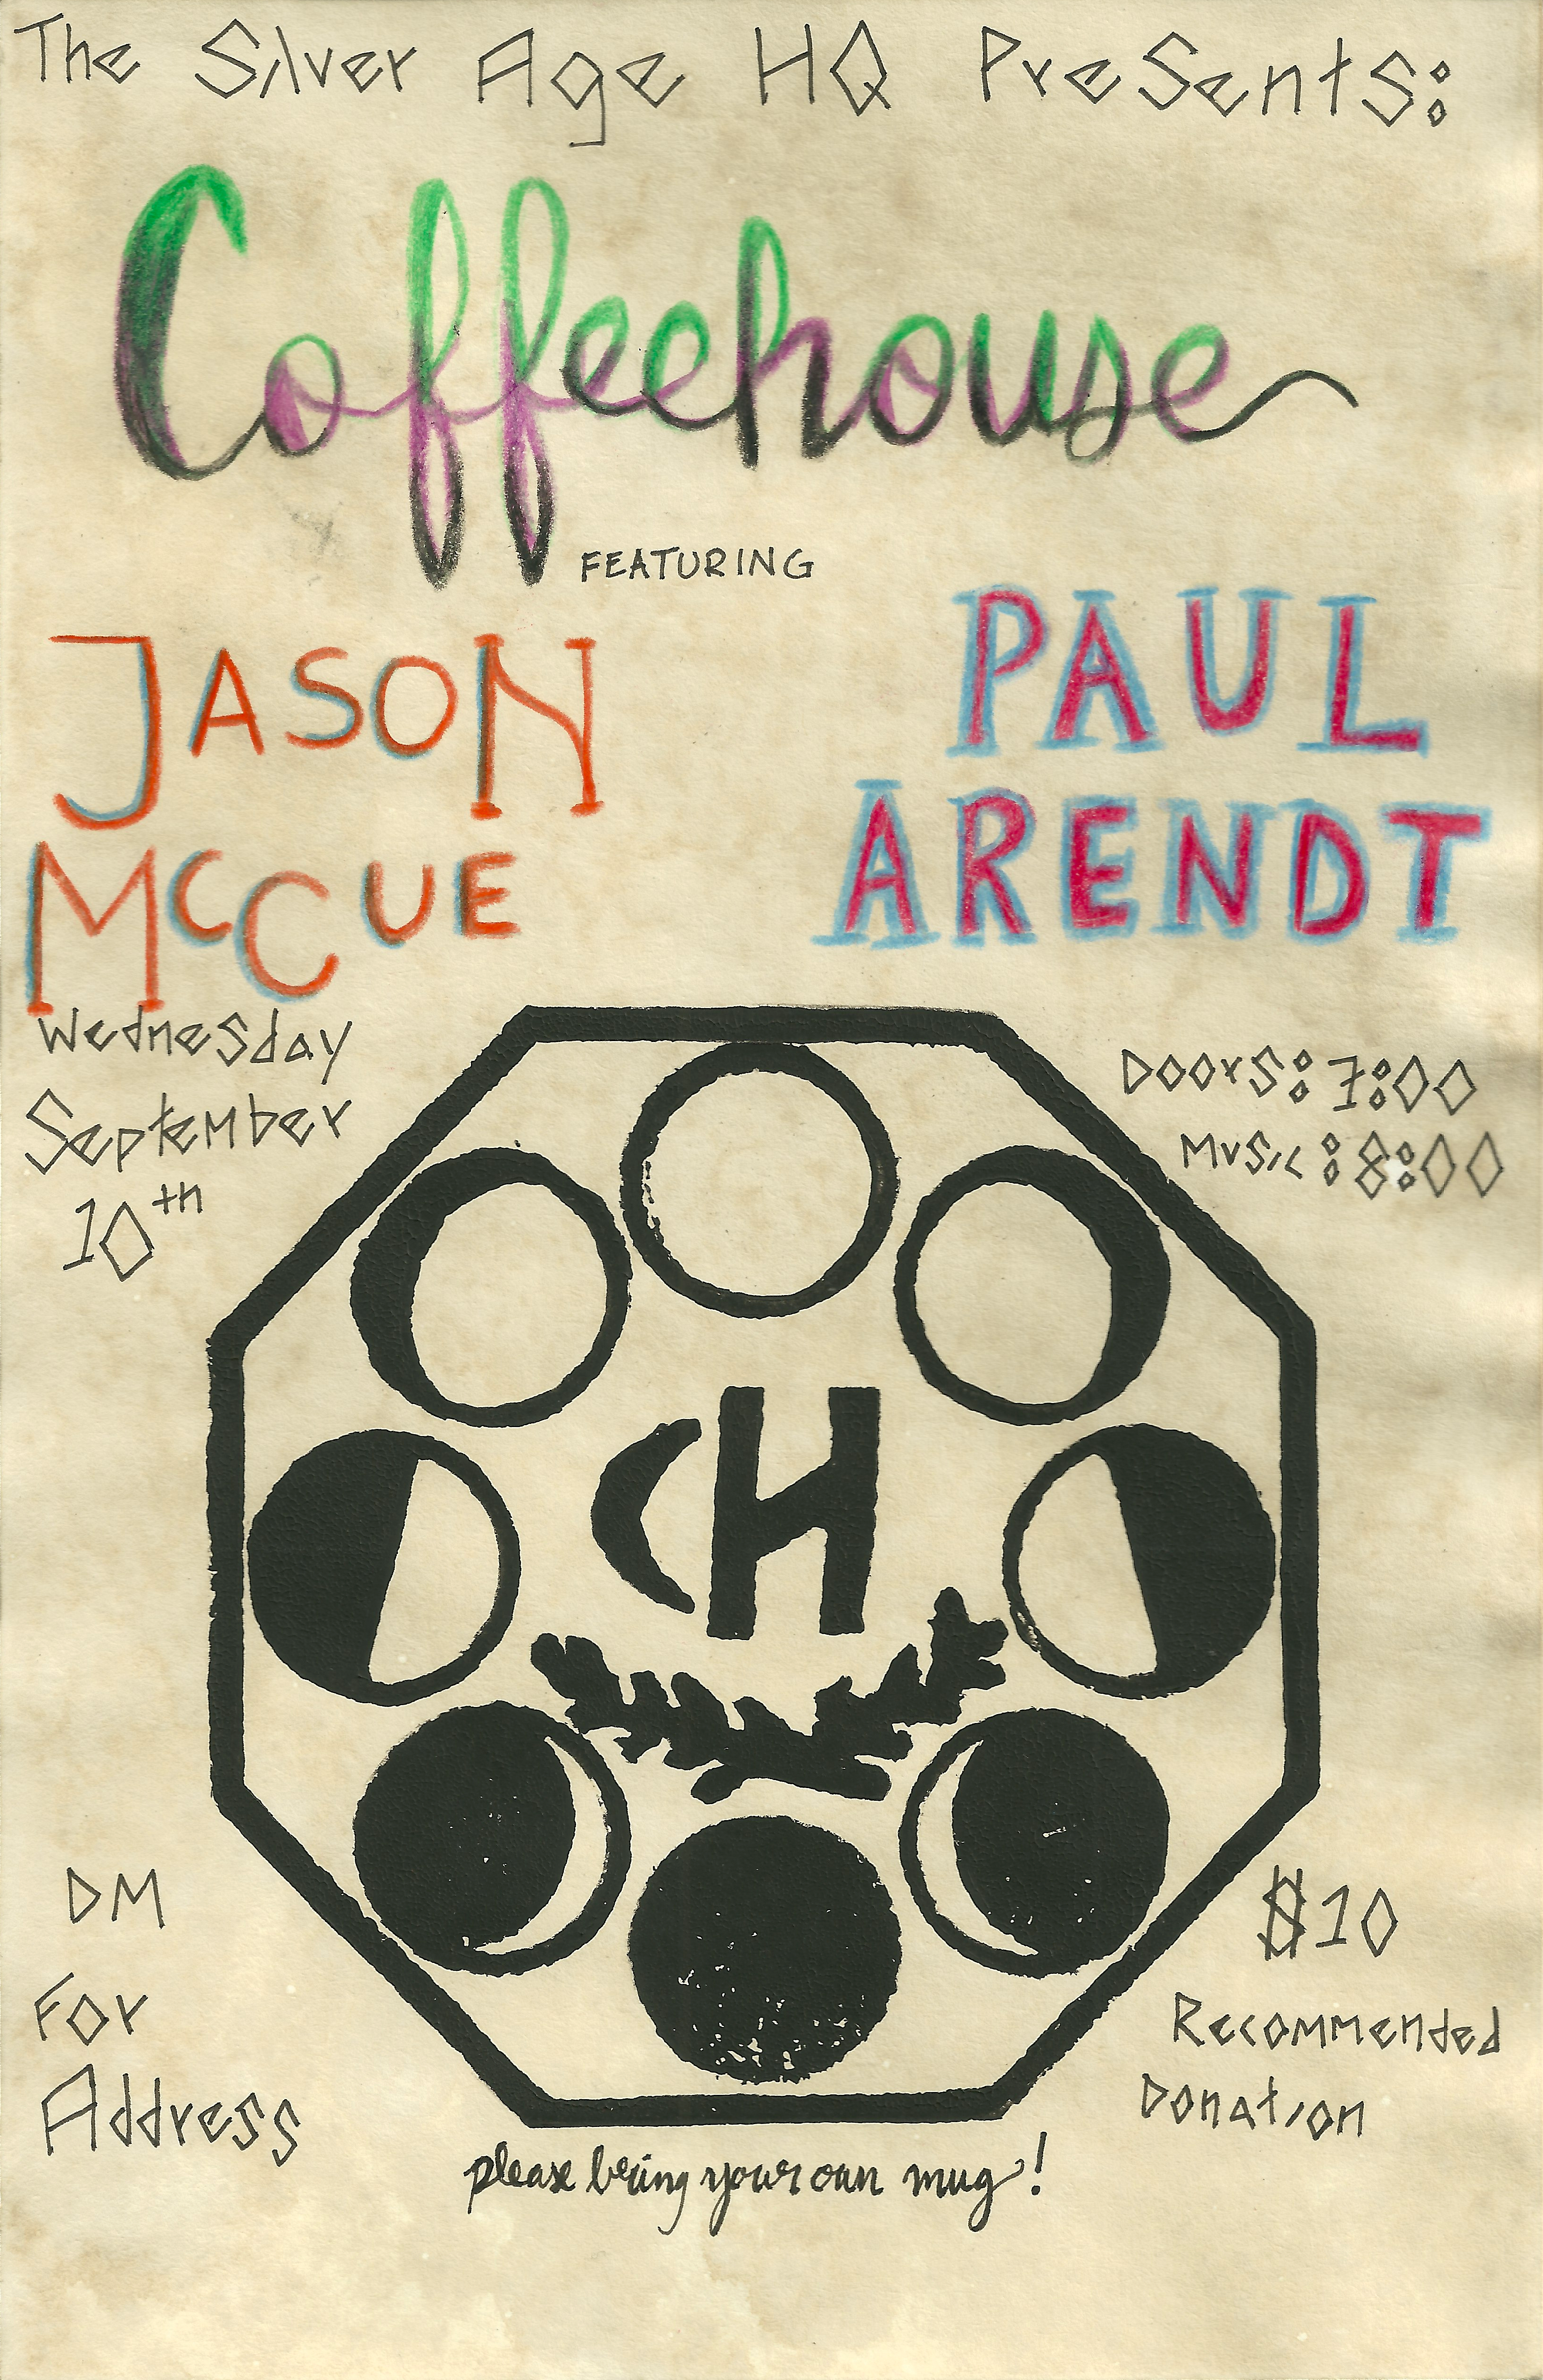 The Silver Age HQ Presents:
Coffeehouse
FEATURING
JASON
McCUE
PAUL
ARENDT
Wednesday
September
10th
Doors: 7:00
Music: 8:00
CH
DM
For
Address
$10
Recommended
Donation
please bring your own mug!